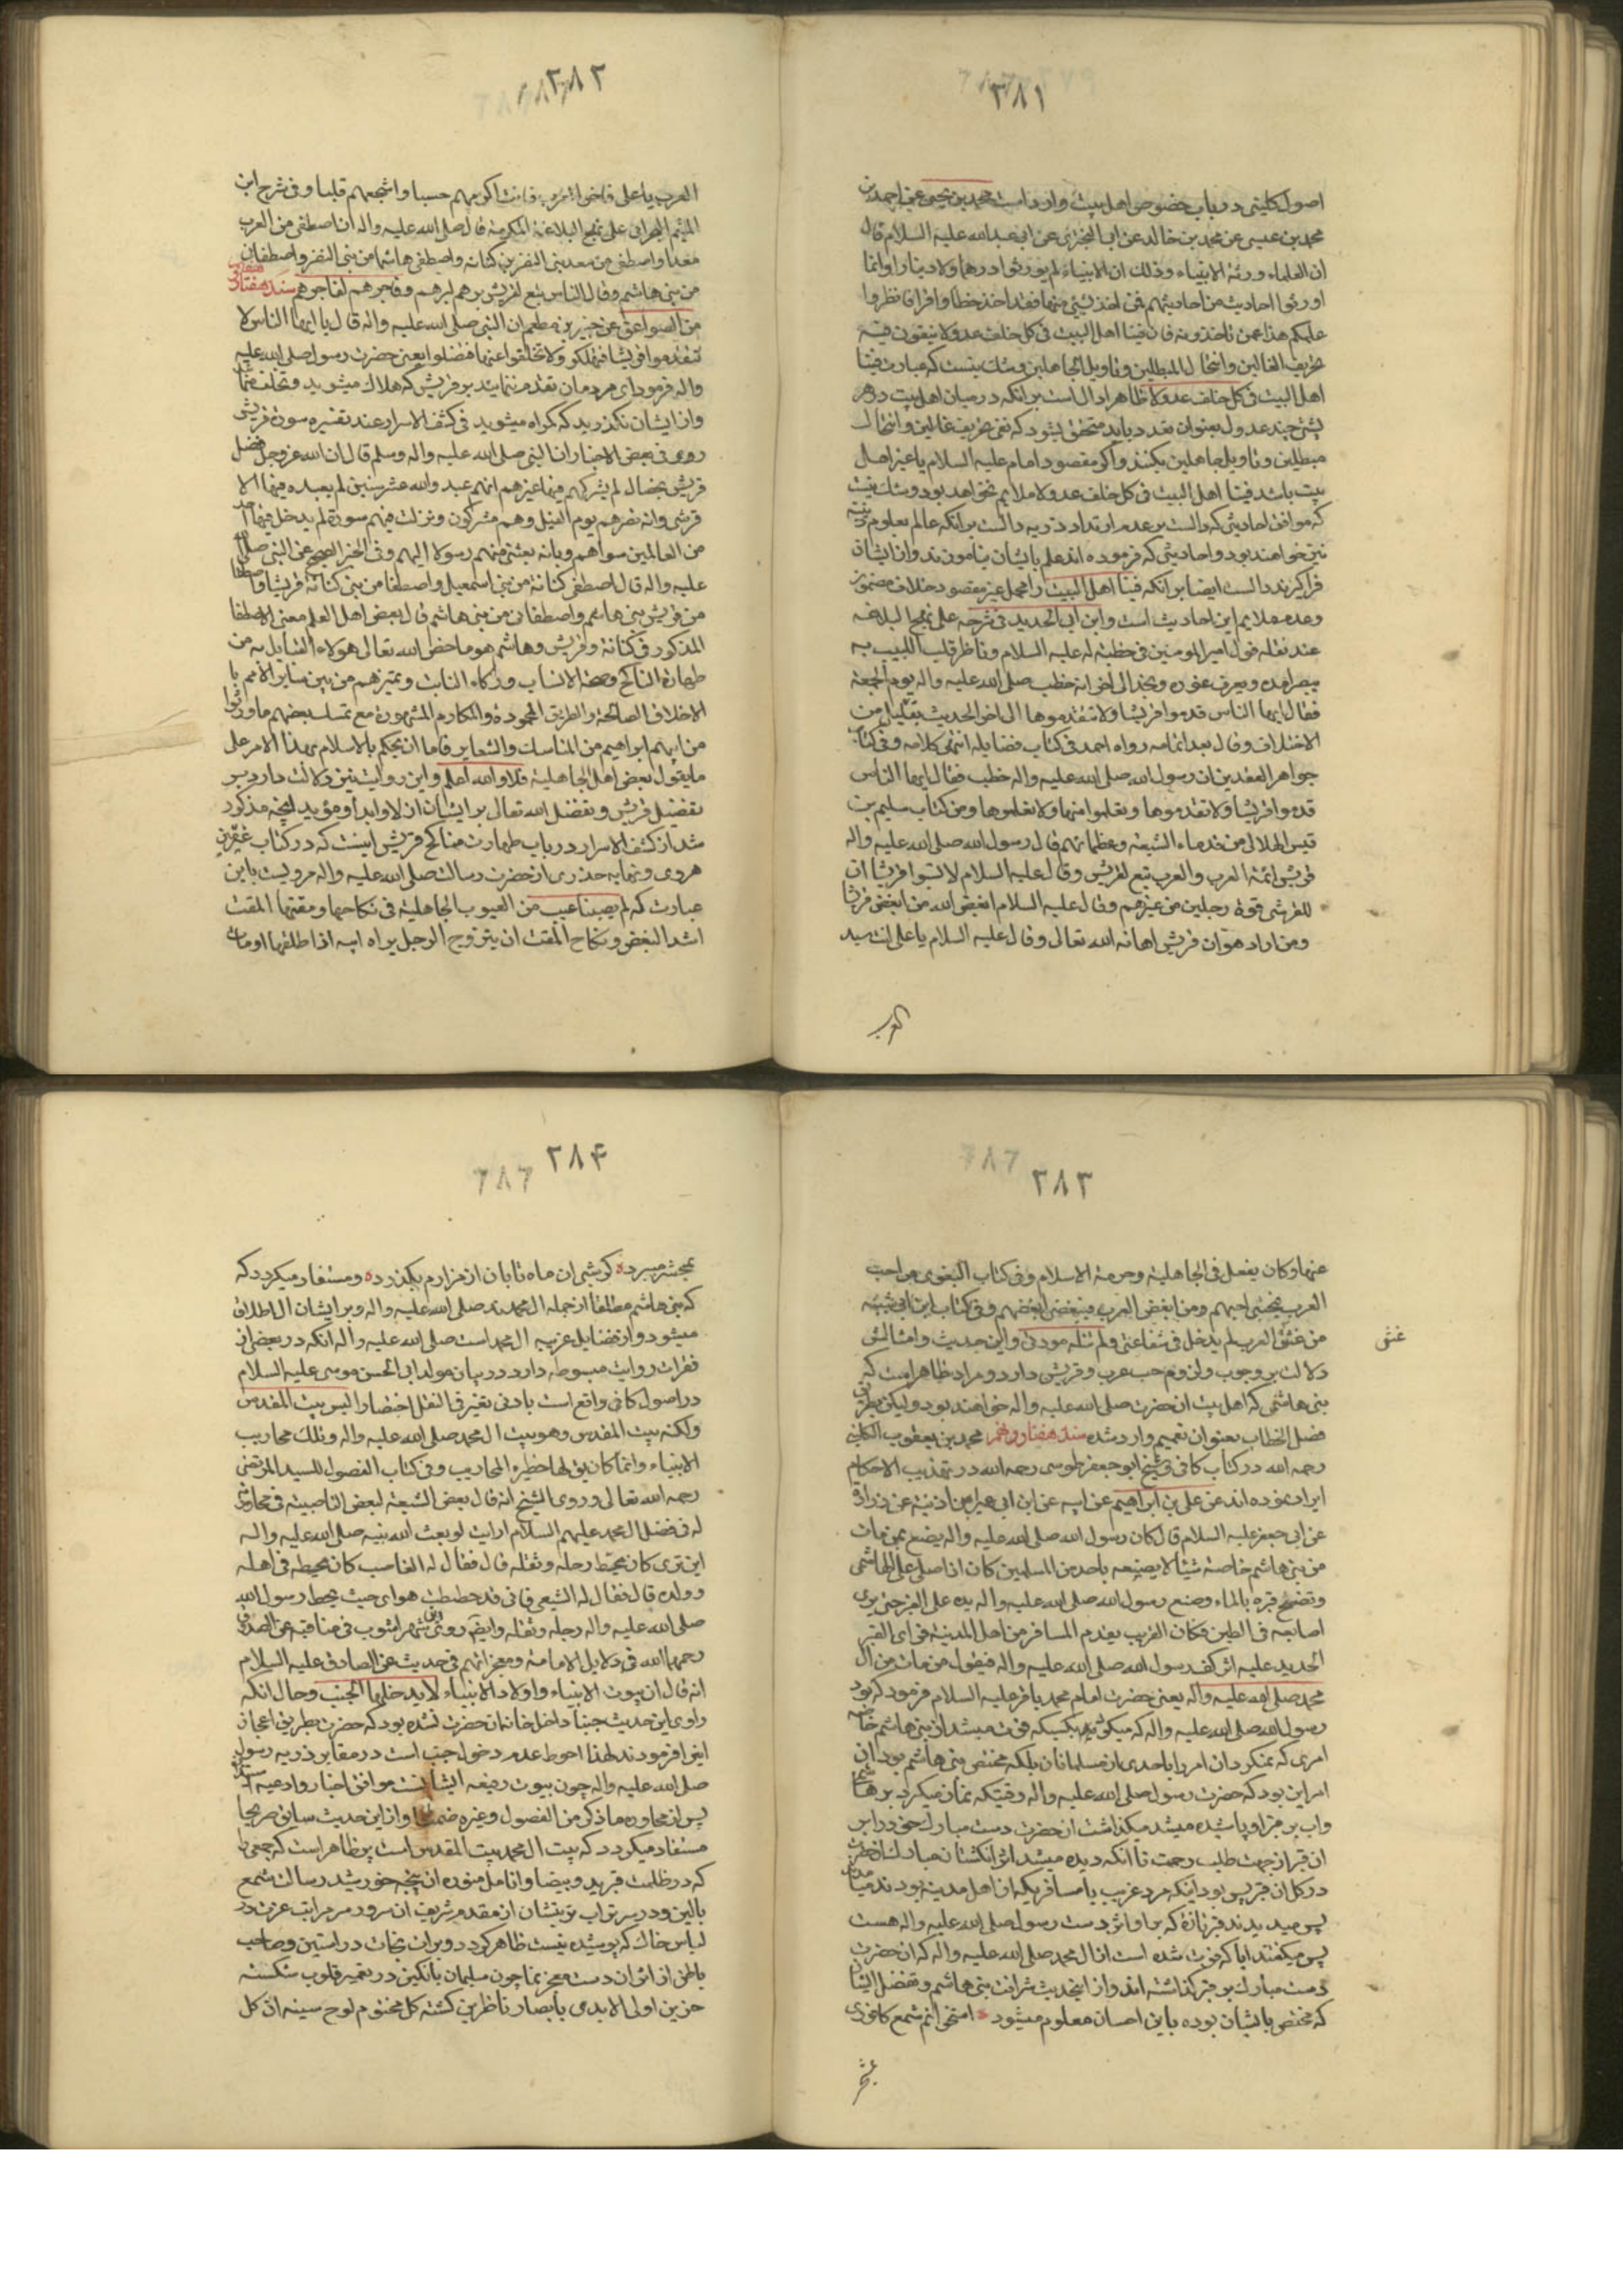 ۳۸۱
اصول کلینی در باب خصوص اهل بیت وارد است محمد بن یحیی عن احمد بن
محمد بن عیسی عن محمد بن خالد عن ابی البختری عن ابی عبدالله علیه السلام قال
ان العلماء ورثة الانبیاء وذلک ان الانبیاء لم یورثوا درهما ولا دینارا وانما
اورثوا احادیث من احادیثهم فمن اخذ بشیء منها فقد اخذ حظا وافرا فانظروا
علمکم هذا عمن تاخذونه فان فینا اهل البیت فی کل خلف عدولا ینفون عنه
تحریف الغالین وانتحال المبطلین وتاویل الجاهلین وشک نیست که عبارت فینا
اهل البیت فی کل خلف عدولا ظاهرا دال است بر انکه در میان اهل بیت در هر
پشتی چند عدول بعنوان تعدد باید متحقق بشود که نفی تحریف غالین وانتحال
مبطلین وتاویل جاهلین بکنند واکر مقصود امام علیه السلام یا غیر اهل
بیت باشد فینا اهل البیت فی کل خلف عدولا ملایم نخواهد بود وشک نیست
که موافق احادیثی که دالست بر عدم ارتداد ذریه دالست بر انکه عالم بعلوم دینیه
نیز خواهند بود واحادیثی که فرموده اند علم بایشان بیاموزند وازایشان
فرا کیرند دالست ایضا بر انکه فینا اهل البیت را محمل غیر مقصود خلاف مضمون
وعدم ملایم این احادیث است وابن ابی الحدید فی شرحه علی نهج البلاغه
عند نقله قول امیر المومنین فی خطبته له علیه السلام وناظر قلب اللبیب به
یبصر امده ویعرف غوره ونجده الی اخرا نه خطب صلی الله علیه واله یوم الجمعة
فقال ایها الناس قدموا قریشا ولا تتقدموها الی اخر الحدیث بقلیل من
الاختلاف وقال بعد اتمامه رواه احمد فی کتاب فضایله انتهی کلامه وفی کتاب
جواهر العقدین ان رسول الله صلی الله علیه واله خطب فقال ایها الناس
قدموا قریشا ولا تقدموها وتعلموا منها ولا تعلموها ومن کتاب سلیم بن
قیس الهلالی من قدماء الشیعه وعظمائهم قال رسول الله صلی الله علیه واله
قریش ائمة العرب والعرب تبع لقریش وقال علیه السلام لا تسبوا قریشا ان
للقرشی قوة رجلین من غیرهم وقال علیه السلام ابغض الله من ابغض قریشا
ومن اراد هوان قریش اهانه الله تعالی وقال علیه السلام یا علی انت سید
العرب
۳۸۲
العرب یا علی فاخر العرب فانت اکرمهم حسبا واشجعهم قلبا وفی شرح ابن
المیثم البحرانی علی نهج البلاغة المکرمة قال صلی الله علیه واله ان اصطفی من العرب
معدا واصطفی من معد بنی النضر بن کنانه واصطفی هاشما من بنی النضر واصطفانی
من بنی هاشم وقال الناس تبع لقریش برهم لبرهم وفاجرهم لفاجرهم سند هفتاد
من الصواعق عن جبیر بن مطعم ان النبی صلی الله علیه واله قال یا ایها الناس لا
تتقدموا قریشا فتهلکوا ولا تخلفوا عنها فتضلوا یعنی حضرت رسول صلی الله علیه
واله فرمود ای مردمان تقدم ننمایند بر قریش که هلاک میشوید وتخلف منما
واز ایشان نکذرید که کمراه میشوید فی کشف الاسرار عند تفسیره سورة قریش
روی فی بعض الاخبار ان النبی صلی الله علیه واله وسلم قال ان الله عز وجل فضل
قریش بخصال لم یشرکهم فیها غیرهم انهم عبدوالله عشر سنین لم یعبده فیها الا
قرشی وانه نصرهم یوم الفیل وهم مشرکون ونزلت فیهم سورة لم یدخل فیها احد
من العالمین سواهم وبانه بعث منهم رسولا الیهم وفی الخبر الصحیح عن النبی صلی الله
علیه واله قال اصطفی کنانة من بنی اسمعیل واصطفا من بنی کنانة قریشا واصطفا
من قریش بنی هاشم واصطفانی من بنی هاشم قال بعض اهل العلم معنی الاصطفا
المذکور فی کنانة وقریش وهاشم هو ما خص الله تعالی هولاء القبایل به من
طهارة الناکح وصحة الانساب وزکاء النابت وتمیزهم من بین سایر الامم با
الاخلاق الصالحة والطریق المحمودة والمکارم المشهورة مع تمسک بعضهم ما ورثوا
من ابیهم ابراهیم من المناسک والشعایر فاما ان یحکم بالاسلام بهذا الامر علی
ما یقول بعض اهل الجاهلیة فلا والله اعلم واین روایت نیز دلالت دارد بر
تفضیل قریش وتفضل الله تعالی بر ایشان ازلا وابدا ومؤید انچه مذکور
شد از کشف الاسرار در باب طهارت مناکح قریش اینست که در کتاب غریبین
هروی ونهایه جذری از حضرت رسالت صلی الله علیه واله مرویست باین
عبارت که لم یصبنا عیب من العیوب الجاهلیة فی نکاحها ومقتها المقت
اشد البغض ونکاح المقت ان یتزوج الرجل براه ابیه اذا طلقها او مات
۳۸۳
عنها وکان یفعل فی الجاهلیة وحرمة الاسلام وفی کتاب البغوی من احب
العرب فبحبی احبهم ومن ابغض العرب فببغضی ابغضهم وفی کتاب ابن ابی شیبه
من غش العرب لم یدخل فی شفاعتی ولم تنله مودتی واین حدیث وامثالش
دلالت بر وجوب ولزوم حب عرب وقریش دارد ومراد ظاهر است که
بنی هاشمی که اهل بیت ان حضرت صلی الله علیه واله خواهند بود ولیکن بطریق
فضل الخطاب بعنوان تعمیم وارد شده سند هفتاد ونهم محمد بن یعقوب الکلینی
رحمه الله در کتاب کافی وشیخ ابو جعفر طوسی رحمه الله در تهذیب الاحکام
ایراد نموده اند عن علی بن ابراهیم عن ابیه عن ابن ابی عمیر عن ابن اذینه عن زرارة
عن ابی جعفر علیه السلام قال کان رسول الله صلی الله علیه واله یصنع بمن مات
من بنی هاشم خاصة شیئا لا یصنعه باحد من المسلمین کان اذا صلی علی الهاشمی
ونضح قبره بالماء وضع رسول الله صلی الله علیه واله یده علی القبر حتی یری
اصابعه فی الطین فکان الغریب یقدم المسافر من اهل المدینة فیری القبر
الجدید علیه اثر کف رسول الله صلی الله علیه واله فیقول من مات من ال
محمد صلی الله علیه واله یعنی حضرت امام محمد باقر علیه السلام فرمود که بود
رسول الله صلی الله علیه واله که میکرد بکسیکه فوت میشد از بنی هاشم خاصه
امری که نمیکرد ان امر را باحدی از مسلمانان بلکه مختص بنی هاشم بود ان
امر این بود که حضرت رسول صلی الله علیه واله وقتیکه نماز میکرد بر هاشمی
واب بر قبر او پاشیده میشد میکذاشت ان حضرت دست مبارک خود را بر
ان قبر از جهت طلب رحمت تا انکه دیده میشد اثر انکشتان مبارک انحضرت
در کل ان قبر پس بود اینکه مرد غریب یا مسافریکه از اهل مدینه بودند میامدند
پس میدیدند قبر تازه که بر او اثر دست رسول صلی الله علیه واله هست
پس میکفتند ایا که فوت شده است از ال محمد صلی الله علیه واله که ان حضرت
دست مبارک بر قبر کذاشته اند واز اینحدیث شرافت بنی هاشم وتفضل ایشان
که مختص بایشان بوده باین احسان معلوم میشود استخوانم شمع کافوری
غش
۳۸۴
۶۸۷
کر شبی ان ماه تابان از مزارم بکذرد ومستفاد میکردد که
که بنی هاشم مطلقا از جمله ال محمدند صلی الله علیه واله وبر ایشان ال اطلاق
میشود واز فضایل غریبه ال محمد است صلی الله علیه واله انکه در بعضی از
فقرات روایت مبسوطه دارد در بیان مولد ابی الحسن موسی علیه السلام
در اصول کافی واقع است بادنی تغیر فی النقل اختصارا لیس بیت المقدس
ولکنه بیت المقدس وهو بیت ال محمد صلی الله علیه واله وتلک محاریب
الانبیاء وانما کان یق لها حظیرة المحاریب وفی کتاب الفصول للسید المرتضی
رحمه الله تعالی وروی الشیخ انه قال بعض الشیعة لبعض الناصبیة فی محاورته
له فی فضل ال محمد علیهم السلام ارایت لو بعث الله نبیه صلی الله علیه واله
این تری کان یحط رحله وثقله قال فقال له الناصب کان یحطه فی اهله
وولده قال فقال له الشیعی فانی قد حططت هوای حیث یحط رسول الله
صلی الله علیه واله رحله وثقله وایضا روی ابن شهر اشوب فی مناقبه عن الصدوق
رحمهما الله فی دلایل الامامة ومعجزاتهم فی حدیث عن الصادق علیه السلام
انه قال ان بیوت الانبیاء واولاد الانبیاء لا یدخلها الجنب وحال انکه
راوی این حدیث جنبا داخل خانه ان حضرت شده بود که حضرت بطریق اعجاز
اینرا فرمودند لهذا احوط عدم دخول جنب است در مقابر ذریه رسول
صلی الله علیه واله چون بیوت رفیعه ایشانست موافق اخبار وادعیه
پس از محاوره ما ذکر من الفصول وغیره ضمنا واز این حدیث سابق صریحا
مستفاد میکردد که بیت ال محمد بیت المقدس است پس ظاهر است که جمعی را
که در ظلمت قبر ید وبیضا وانامل منوره ان پنجه خورشید رسالت شمع
بالین ودر بستر تراب تربتشان از مقدم شریف ان سرور مرمراتب عزت در
لباس خاک که پوشیده نیست ظاهر کردد وبر ان نجات در استین وصاحب
یا لمن از اثر ان دست معجز نما چون سلیمان بانکین در تعمیر قلوب شکسته
حزین اولی الایدی بابصار ناظرین کشته کل مختوم لوح سینه ان کل